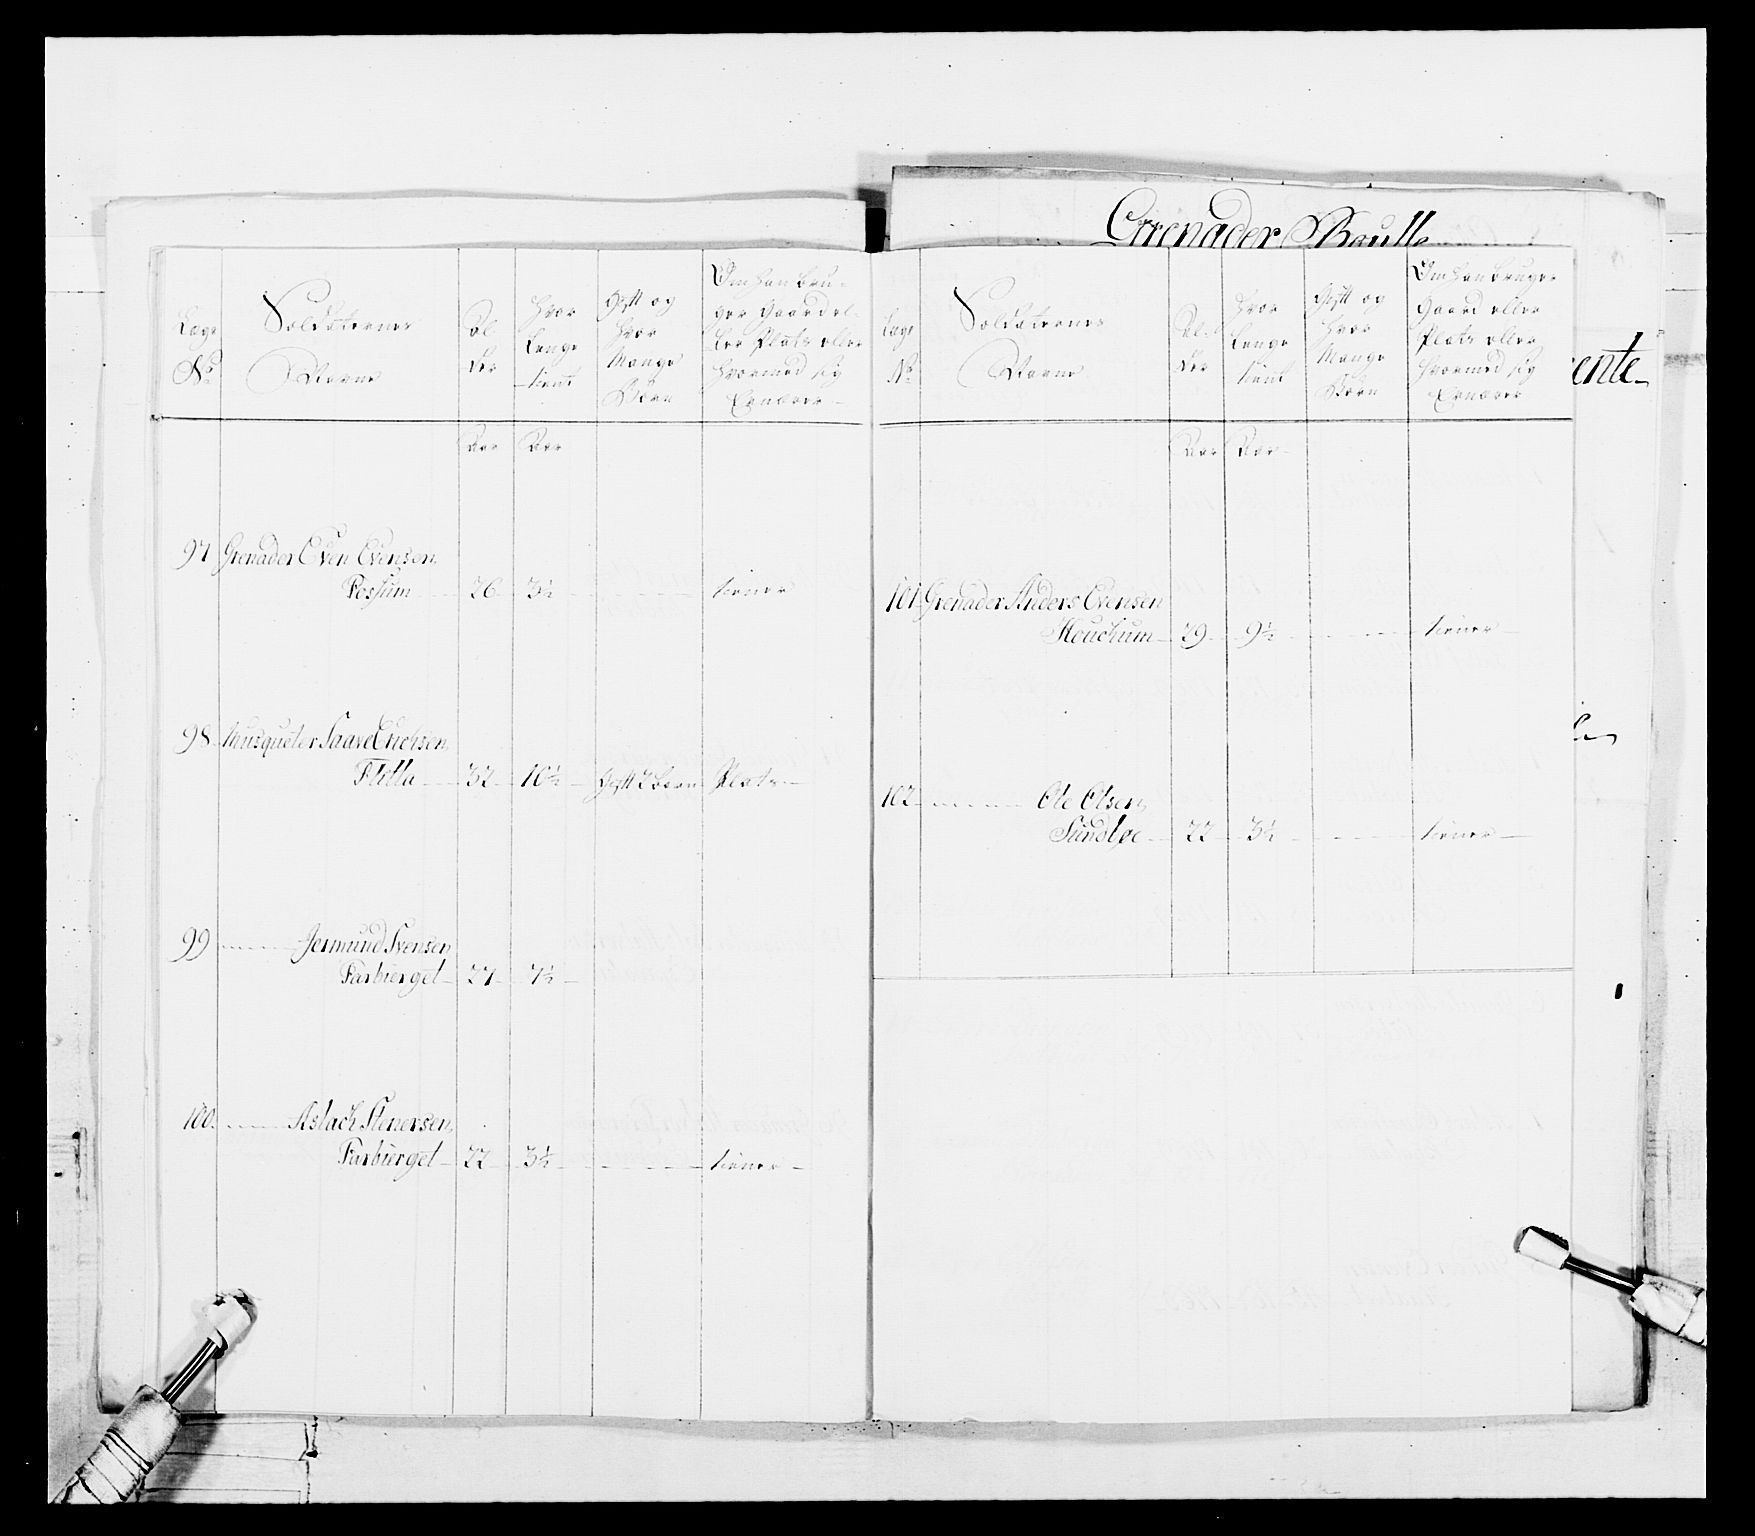 Grenader Roulle
ente
Lægs No
Soldaternes Navne
Alder
Hvor lenge tient
Gift og hvor Mange Børn
Om han bruger Gaard eller Plats eller hvormed sig Ernærer
Aar Aar
97 Grenader Even Evensen
Fossum 26 3½ tiener
98 Musqueter Saave Erichsen
Flotta 32 10½ Gift 2 børn Plats
99 Jermund Svensen
Farbierget 27 7½
100 Aslach Stenersen
Farbierget 22 3½ tiener
Lægs No
Soldaternes Navne
Alder
Hvor Lenge tient
Gift og Hvor Mange Børn
Om han bruger Gaard eller Plats eller hvormed sig Ernærer
Aar Aar
101 Grenader Anders Evensen
Houchum 29 9½ tiener
102 Ole Olsen
Sundbøe 22 3½ tiener